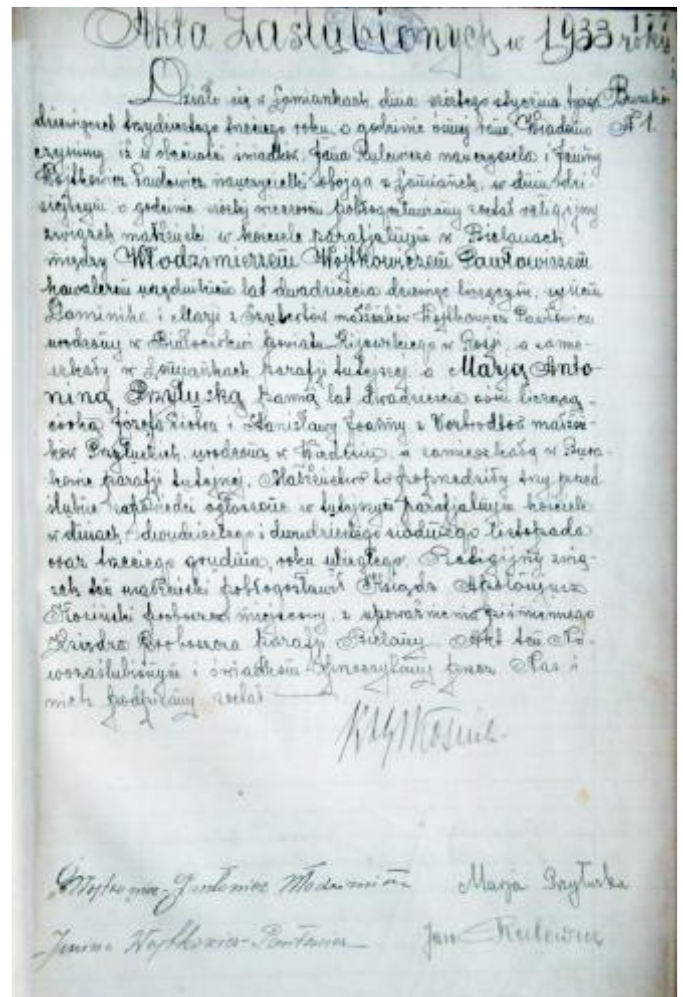 177
Akta Zaślubionych w 1933 roku
Działo się w Łomiankach, dnia szóstego stycznia tysiąc Buraków
dziewięćset trzydziestego trzeciego roku, o godzinie ósmej rano. Wiadomo № 1.
czynimy iż w obecności świadków, Jana Rulewicza nauczyciela i Janiny
Wojtkowicz Pawłowicz nauczycielki obojga z Łomianek, w dniu dzi-
siejszym, o godzinie szóstej wieczorem pobłogosławiony został religijny
związek małżeński w kościele parafjalnym w Bielanach
między Włodzimierzem Wojtkowiczem Pawłowiczem
kawalerem urzędnikiem lat dwadzieścia liczącym, synem
Dominika i Marji z małżonków Wojtkowicz Pawłowicz
urodzony w powiatu Kijowskiego w Rosji, a zamie-
szkały w Łomiankach parafji tutejszej, a Marją Anto-
niną Przyłuską panną lat dwadzieścia ośm liczącą -
córką Józefa Piotra i Stanisławy Joanny z małżon-
ków Przyłuskich, urodzoną w Wiedniu, a zamieszkałą w Bura-
kowie parafji tutejszej. Małżeństwo to poprzedziły trzy przed
ślubne zapowiedzi ogłoszone w tutejszym parafjalnym kościele
w dniach: dwudziestego i dwudziestego siódmego listopada
oraz trzeciego grudnia, roku ubiegłego. Religijny zwią-
zek ten małżeński pobłogosławił Ksiądz Apolonjusz
Kosiński proboszcz miejscowy, z upoważnienia piśmiennego
Księdza Proboszcza Parafji Bielany. Akt ten No-
wozaślubionym i świadkom przeczytany przez Nas i
nich podpisany został
Wojtkowicz-Pawłowicz Włodzimierz Marja Przyłuska
Janina Wojtkowicz-Pawłowicz Jan Rulewicz